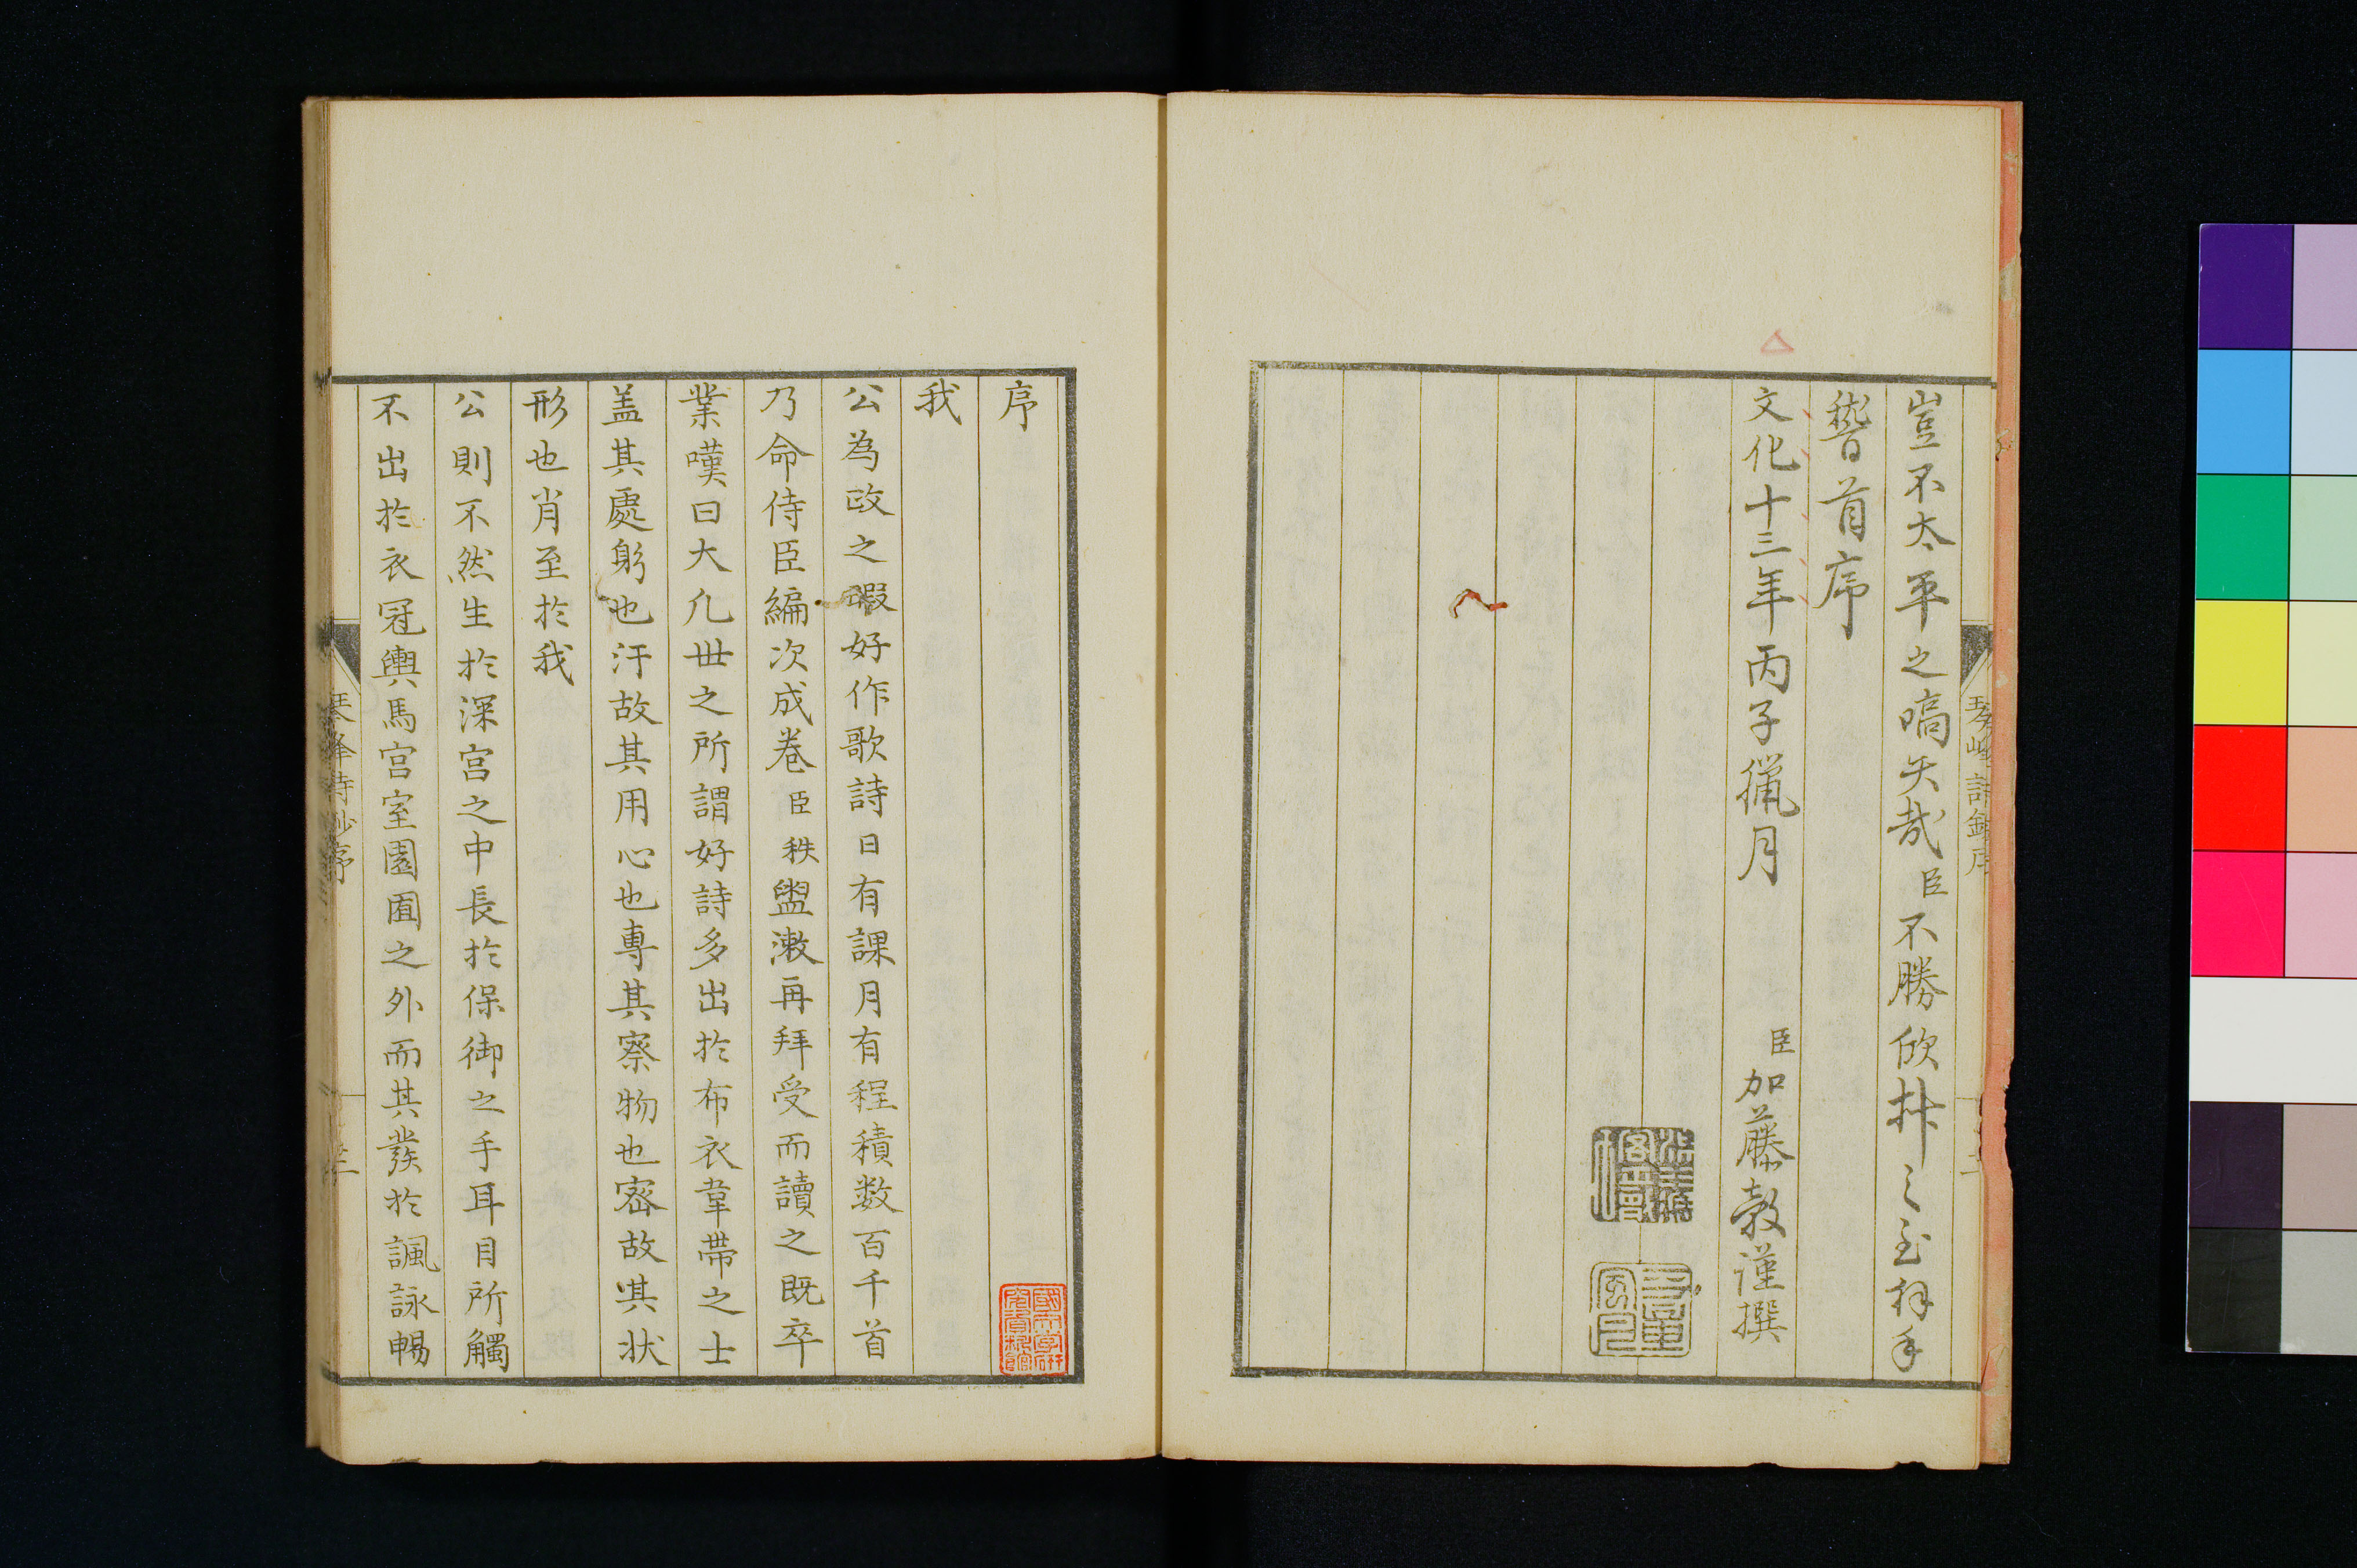 豈不太平之嚆矢哉臣不勝欣抃之至拜手
稽首序
文化十三年丙子獵月
臣加藤穀謹撰
序
我
公為政之暇好作歌詩日有課月有程積数百千首
乃命侍臣編次成卷臣秩盥漱再拜受而讀之既卒
業嘆曰大凡世之所謂好詩多出於布衣韋帶之士
盖其處躬也汙故其用心也專其察物也密故其状
形也肖至於我
公則不然生於深宮之中長於保御之手耳目所觸
不出於衣冠輿馬宮室園囿之外而其發於諷詠暢
琴峰詩鈔序